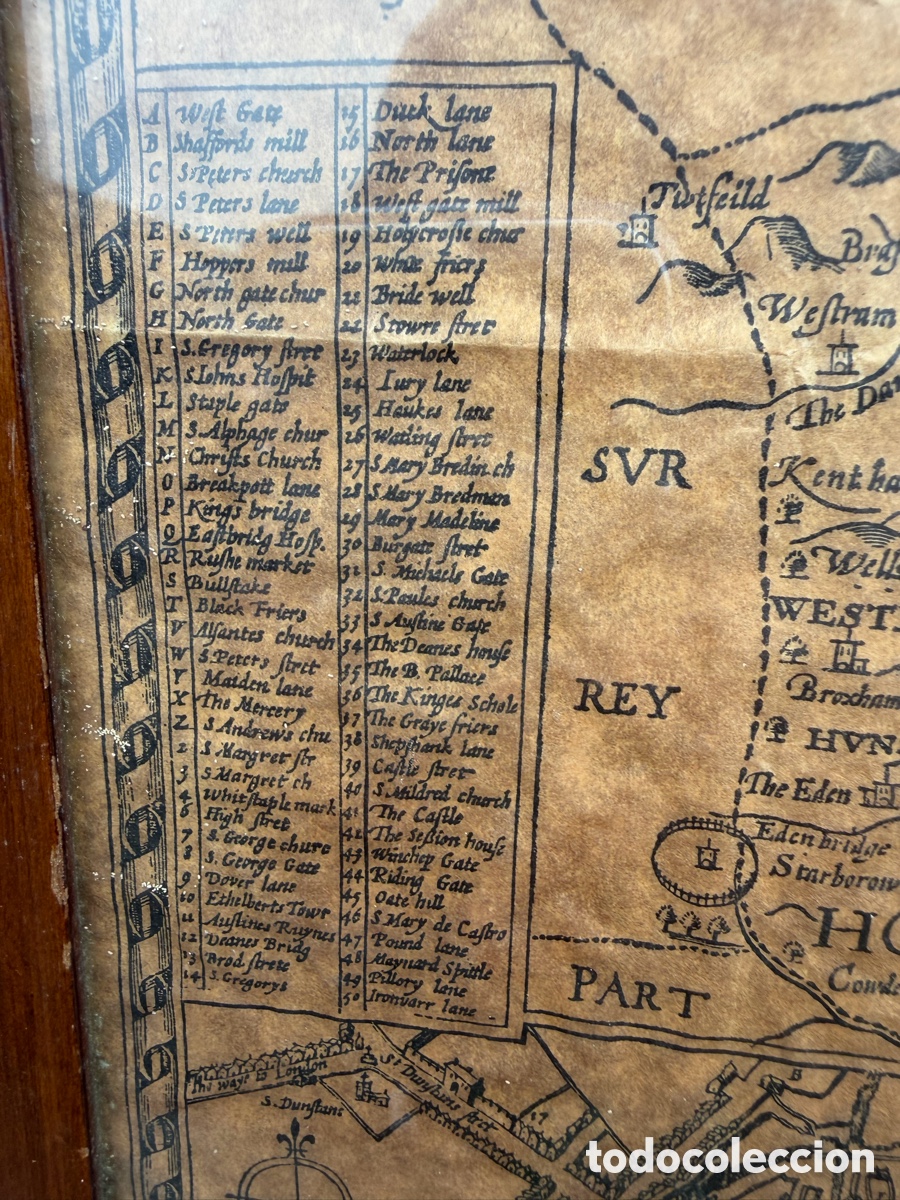 A West Gate
B Shaffords mill
C S. Peters church
D S Peters lane
E S. Peters well
F Hoppers mill
G North gate chur
H North Gate
I S. Gregory stret
K S. Iohns Hospit
L Staple gate
M S. Alphage chur
N Christs Church
O Breakpott lane
P Kings bridge
Q Eastbridg Hosp.
R Rushe market
S Bullstake
T Black Friers
V Alsantes church
W S. Peters stret
Y Maiden lane
X The Mercery
Z S Andrews chu
2 S Margret str
3 S. Margret ch
4 Whitstaple mark
6 High stret
7 S. George churc
8 S. George Gate
9 Dover lane
10 Ethelberts Towr
11 Austines Ruynes
12 Deanes Bridg
13 Brod strete
14 S. Gregorys
15 Duck lane
16 North lane
17 The Prisone
18 West gate mill
19 Holycrosse chur
20 White friers
22 Bride well
22 Stowre stret
23 Waterlock
24 Iury lane
25 Haukes lane
26 Watling stret
27 S. Mary Bredin. ch
28 S. Mary Bredman
29 Mary Madeline
30 Burgate stret
31 S. Michaels Gate
32 S. Paules church
33 S Austine Gate
34 The Deanes house
35 The B. Pallace
36 The Kinges Schole
37 The Graye friers
38 Shepshank lane
39 Castle stret
40 S. Mildred church
41 The Castle
42 The Session house
43 Winchep Gate
44 Riding Gate
45 Oate hill
46 S. Mary de Castro
47 Pound lane
48 Maynard Spittle
49 Pillory lane
50 Ironbarr lane
Tatsfeild
Bras
Westrum
The Dar
SVR
Kent ha
Wells
WEST
REY
Broxham
HVN
The Eden
Eden bridge
Starborow
HO
Cowde
PART
The waye to London
St Dunstans stret
S. Dunstans
17
B
todocoleccion